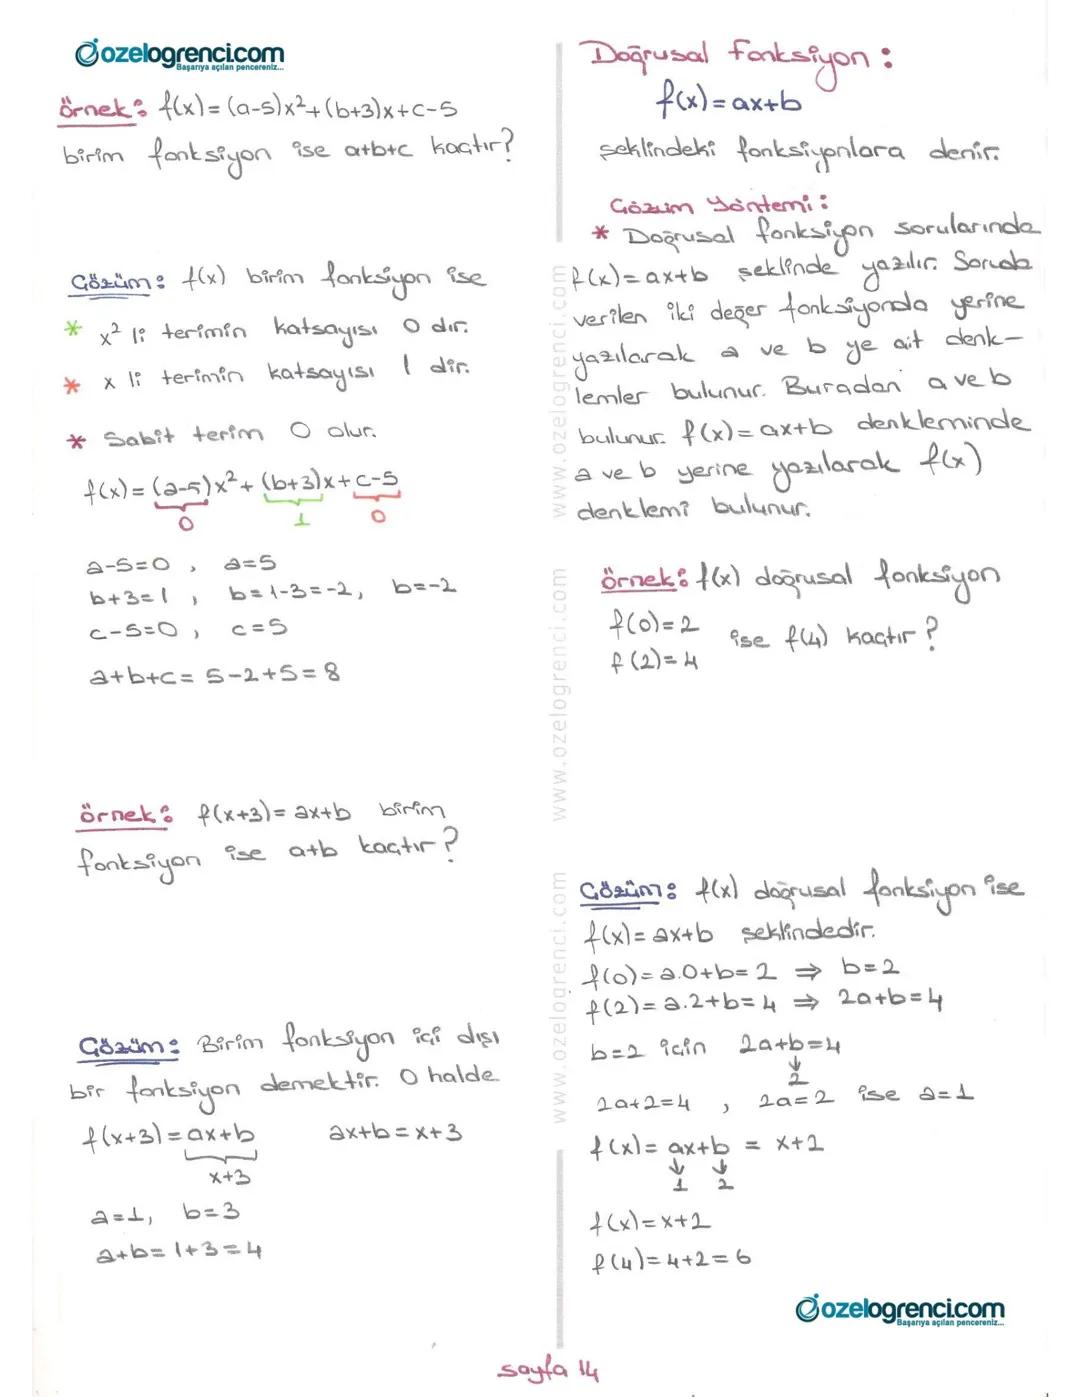 ozelogrenci.com
Başarıya açılan pencereniz...
örnek: f(x)=(a-5)x²+(b+3)x+c-5
birim fonksiyon ise a+b+c kaçtır?
Çözüm: f(x) birim fonksiyon ise
* x² li terimin katsayısı 0 dır.
* x li terimin katsayısı 1 dir.
* Sabit terim 0 olur.
f(x)=(a-5)x²+(b+3)x+c-5
0 1 0
a-5=0, a=5
b+3=1, b=1-3=-2, b=-2
c-5=0, c=5
a+b+c=5-2+5=8
örnek: f(x+3)=ax+b birim
fonksiyon ise a+b kaçtır?
Çözüm: Birim fonksiyon içi dışı
bir fonksiyon demektir. O halde
f(x+3)=ax+b ax+b=x+3
x+3
a=1, b=3
a+b=1+3=4
www.ozelogrenci.com
www.ozelogrenci.com
www.ozelogrenci.com
Doğrusal fonksiyon:
f(x)=ax+b
şeklindeki fonksiyonlara denir.
Çözüm Yöntemi:
* Doğrusal fonksiyon sorularında
f(x)=ax+b şeklinde yazılır. Soruda
verilen iki değer fonksiyonda yerine
yazılarak a ve b ye ait denk-
lemler bulunur. Buradan a ve b
bulunur. f(x)=ax+b denkleminde
a ve b yerine yazılarak f(x)
denklemi bulunur.
örnek: f(x) doğrusal fonksiyon
f(0)=2
f(2)=4
ise f(4) kaçtır?
Çözüm: f(x) doğrusal fonksiyon ise
f(x)=ax+b şeklindedir.
f(0)=a.0+b=2 ⇒ b=2
f(2)=a.2+b=4 ⇒ 2a+b=4
b=2 için 2a+b=4
↓
2
2a+2=4, 2a=2 ise a=1
f(x)=ax+b=x+2
↓ ↓
1 2
f(x)=x+2
f(4)=4+2=6
ozelogrenci.com
Başarıya açılan pencereniz...
sayfa 14